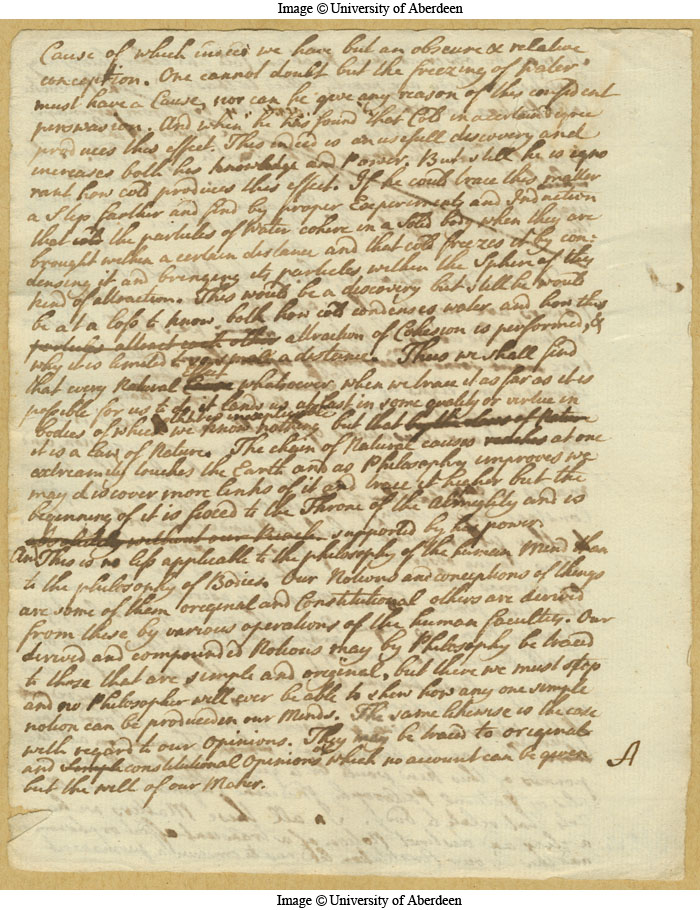 Image © University of Aberdeen
Cause of which indeed we have but an obscure & relative
conception. One cannot doubt but the freezing of water
must have a Cause, nor can he give any reason of this confident
perswasion. And when he has found that Cold in a certain degree
produces this effect. This indeed is an usefull discovery and
increases both his knowledge and Power. But still he is igno
rant how cold produces this effect. If he could trace this matter
a Step farther and find by proper Experiments and Induction
that the particles of Water cohere in a Solid body when they are
brought within a certain distance and that cold freezes it by con=
densing it and bringing its particles within the Sphere of this
kind of attraction. This would be a discovery but still he would
be at a loss to know both how cold condenses water and how this
particles attract each other attraction of Cohesion is performed, &
why it is limited to so small a distance. Thus we shall find
Effect
that every Natural Cause whatsoever when we trace it as far as it is
possible for us to do it lands us at last in some quality or virtue in
bodies of which we know nothing but that by the Laws of Nature
it is a law of Nature. The chain of Natural causes reaches at one
extreamity touches the Earth and as Philosophy improves we
may discover more links of it and trace it higher but the
beginning of it is fixed to the Throne of the Almighty and is
without our Reach supported by his power
And This is no less applicable to the philosophy of the human Mind than
to the philosophy of Bodies. Our Notions and conceptions of things
are some of them original and Constitutional others are derived
from these by various operations of the human faculties. Our
derived and compounded Notions may by Philosophy be traced
to those that are simple and original, but there we must stop
and no Philosopher will ever be able to shew how any one simple
notion can be produced in our Minds. The same likewise is the case
with regard to our Opinions. They may be traced to original
and Simple constitutional Opinions of which no account can be given A
but the will of our Maker.
Image © University of Aberdeen